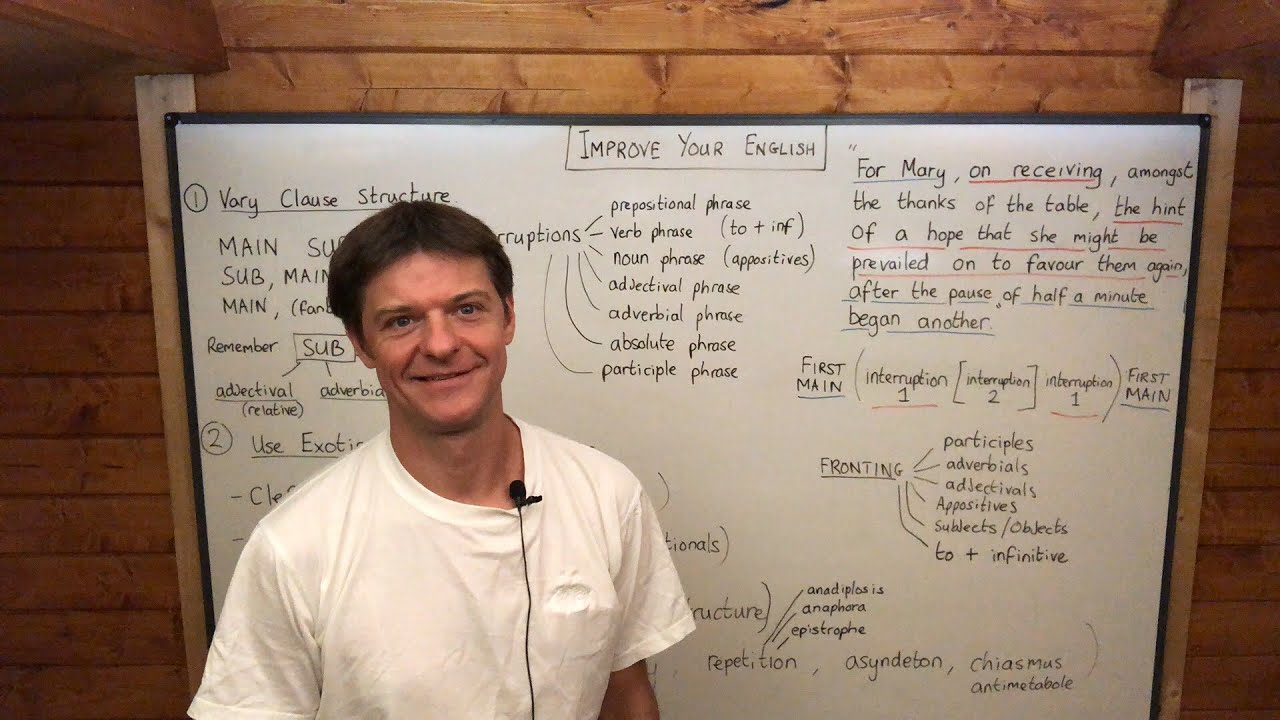 IMPROVE YOUR ENGLISH
1 Vary Clause Structure.
MAIN SUB
SUB, MAIN
MAIN,
Remember SUB
adjectival
(relative)
2 Use
prepositional phrase
verb phrase (to + inf)
noun phrase (appositives)
adjectival phrase
adverbial phrase
absolute phrase
participle phrase
"For Mary, on receiving, amongst
the thanks of the table, the hint
of a hope that she might be
prevailed on to favour them again,
after the pause of half a minute
began another."
FIRST MAIN ( interruption 1 [ interruption 2 ] interruption 1 ) FIRST MAIN
FRONTING
participles
adverbials
adjectivals
Appositives
Subjects/Objects
to + infinitive
anadiplosis
anaphora
epistrophe
repetition, asyndeton, chiasmus
antimetabole